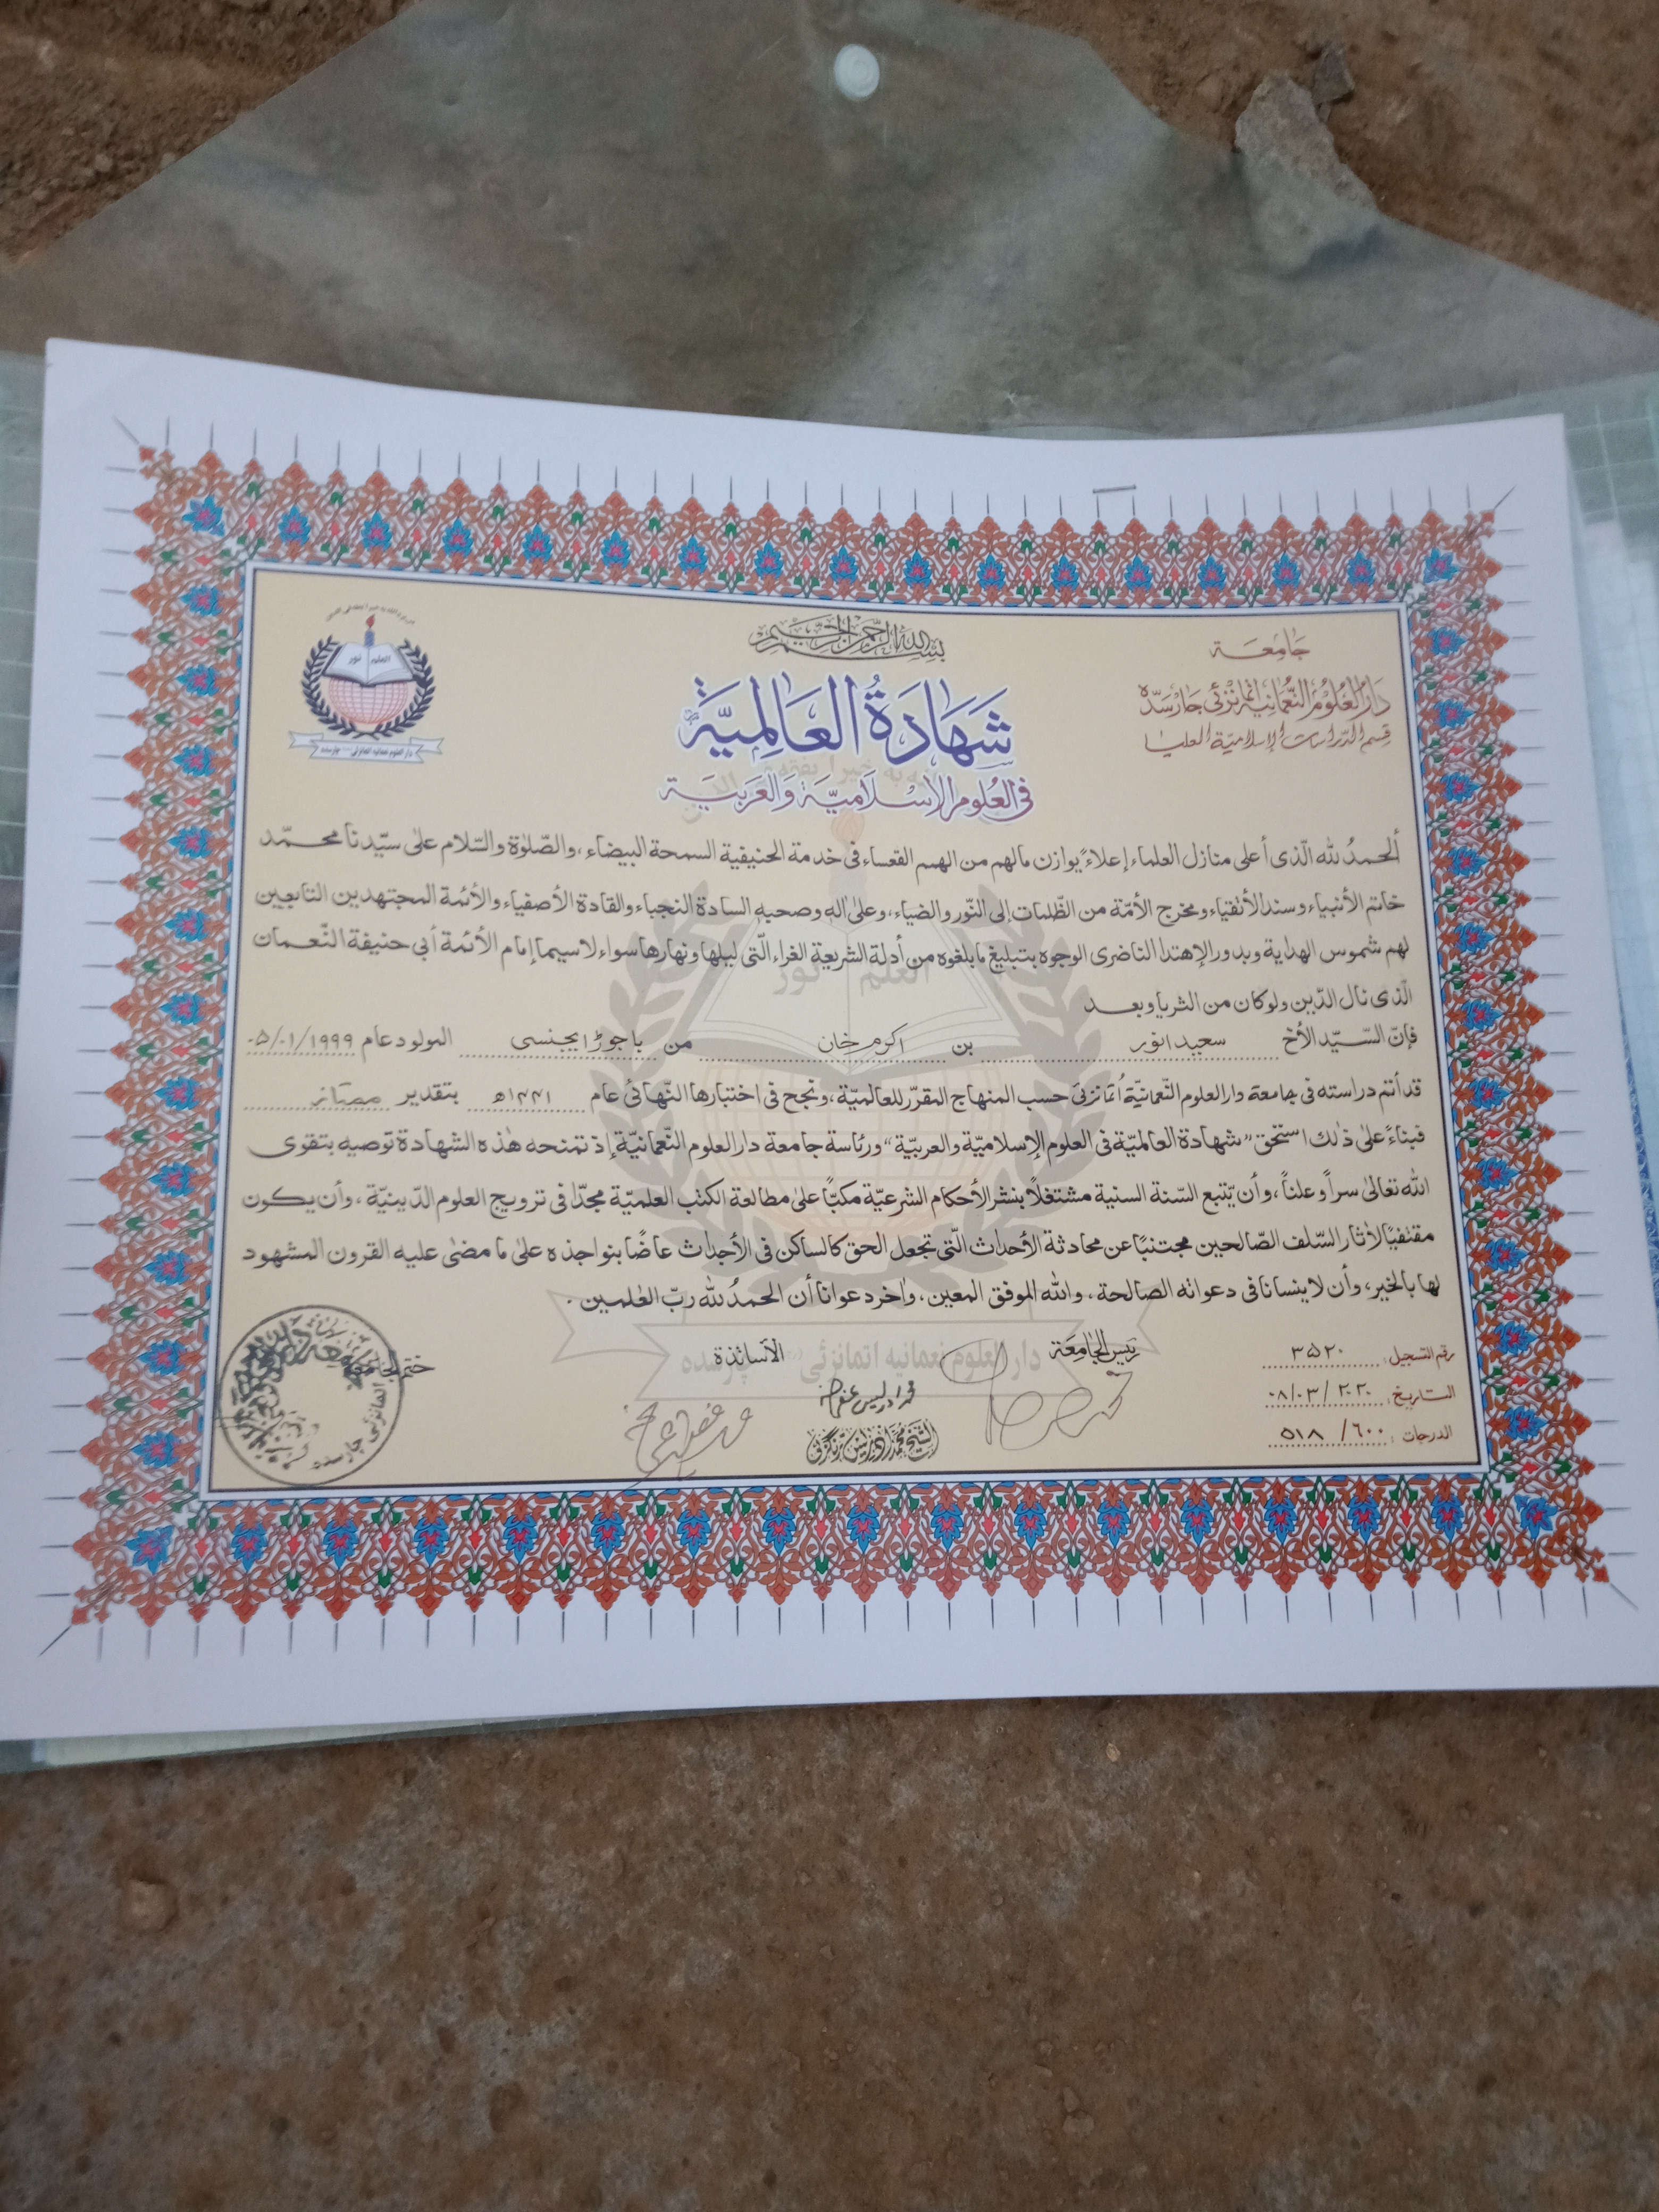 بسم الله الرحمن الرحيم
جَامِعَة
دَارُ العُلُوْمِ النُّعْمَانِيَة اتمانزئی چارسدّہ
قِسم الدّراسات الإسلاميّة العليا
العلم نور
دار العلوم نعمانیہ اتمانزئی چارسدہ
شَهَادَةُ العَالَمِيَّة
فِي العُلُومِ الإِسْلَامِيَّة وَالعَرَبِيَّة
ألحمدُ لله الّذى أعلى منازل العلماء إعلاءً يوازن مالهم من الهمم القعساء فى خدمة الحنيفية السمحة البيضاء، والصّلوٰة والسّلام علىٰ سيّدنا محمّد
خاتم الأنبياء وسند الأتقياء ومخرج الأمّة من الظّلمات إلى النّور والضياء، وعلىٰ اٰله وصحبه السادة النجباء والقادة الأصفياء والأئمة المجتهدين التابعين
لهم شموس الهداية وبدور الإهتدا الناضرى الوجوه بتبليغ ما بلغوه من أدلة الشريعة الغراء الّتى ليلها ونهارها سواء لاسيما إمام الأئمة أبى حنيفة النّعمان
الّذى نال الدّين ولوكان من الثريا وبعد
فإنّ السّيّد الأخ سعيد انور بن اکرم خان من باجوڑ ایجنسی المولود عام ۰۵/۰۱/۱۹۹۹
قد أتم دراسته فى جامعة دار العلوم النّعمانيّة اُتمانزئى حسب المنهاج المقرّر للعالميّة، ونجح فى اختبارها النّهائى عام ۱۴۴۱ھ بتقدير ممتاز
فبناءً علىٰ ذٰلك استحق "شهادة العالميّة فى العلوم الإسلاميّة والعربيّة" ورئاسة جامعة دار العلوم النّعمانيّة إذ تمنحه هٰذه الشهادة توصيه بتقوى
الله تعالىٰ سراً وعلناً، وأن يّتبع السّنة السنية مشتغلاً بنشر الأحكام الشرعيّة مكبّاً علىٰ مطالعة الكتب العلميّة مجدّاً فى ترويج العلوم الدّينيّة، وأن يكون
مقتفيًا لاٰثار السّلف الصّالحين مجتنبًا عن محادثة الأحداث الّتى تجعل الحق كالساكن فى الأجداث عاضًا بنواجذه علىٰ ما مضىٰ عليه القرون المشهود
لها بالخير، وأن لا ينسانا فى دعواته الصالحة، والله الموفق المعين، واٰخر دعوانا أن الحمدُ لله ربّ العٰلمين.
رقم التسجيل: ۳۵۲۰
التاريخ: ۰۸/۰۳/۲۰۲۰
الدرجات: ۵۱۸/۶۰۰
رئيس الجامعَة
الأساتذة
ختم الجامعة
الشيخ محمد ادريس ترنگزئی